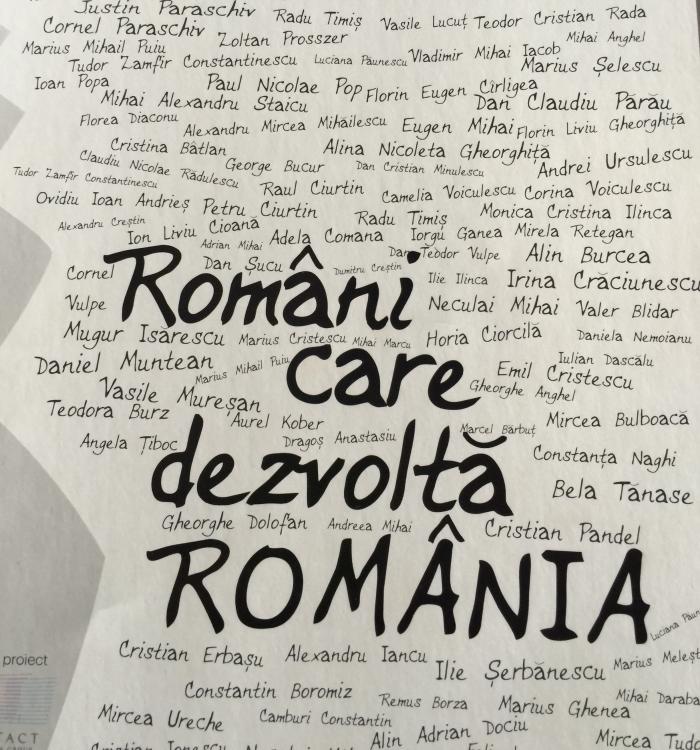 Justin Paraschiv
Radu Timiș Vasile Lucuț Teodor Cristian Rada
Cornel Paraschiv Zoltan Prosszer Mihai Anghel
Marius Mihail Puiu Luciana Păunescu Vladimir Mihai Iacob
Tudor Zamfir Constantinescu Marius Șelescu
Ioan Popa Paul Nicolae Pop Florin Eugen Cîrligea
Mihai Alexandru Staicu Dan Claudiu Părău
Florea Diaconu Alexandru Mircea Mihăilescu Eugen Mihai Florin Liviu Gheorghiță
Cristina Bâtlan Alina Nicoleta Gheorghiță
Claudiu Nicolae Rădulescu George Bucur Dan Cristian Minulescu Andrei Ursulescu
Tudor Zamfir Constantinescu Raul Ciurtin Camelia Voiculescu Corina Voiculescu
Ovidiu Ioan Andrieș Petru Ciurtin Radu Timiș Monica Cristina Ilinca
Alexandru Creștin Ion Liviu Cioană Adela Comana Iorgu Ganea Mirela Retegan
Adrian Mihai Dan Teodor Vulpe Alin Burcea
Cornel Dan Șucu Dumitru Creștin Ilie Ilinca Irina Crăciunescu
Români
Vulpe Neculai Mihai Valer Blidar
Mugur Isărescu Marius Cristescu Mihai Marcu Horia Ciorcilă Daniela Nemoianu
Daniel Muntean Marius Mihail Puiu Iulian Dascălu
care
Emil Cristescu
Vasile Mureșan Gheorghe Anghel
Teodora Burz Aurel Kober Mircea Bulboacă
Angela Țiboc Dragoș Anastasiu Marcel Bărbuț
dezvoltă
Constanța Naghi
Bela Tănase
Gheorghe Dolofan Andreea Mihai Cristian Pandel
ROMÂNIA
Luciana
Cristian Erbașu Alexandru Iancu Ilie Șerbănescu Marius
proiect
Constantin Boromiz Remus Borza Marius Ghenea Mihai Daraba
Mircea Ureche Camburi Constantin Alin Adrian Dociu Mircea
TACT
Cristian Ionescu